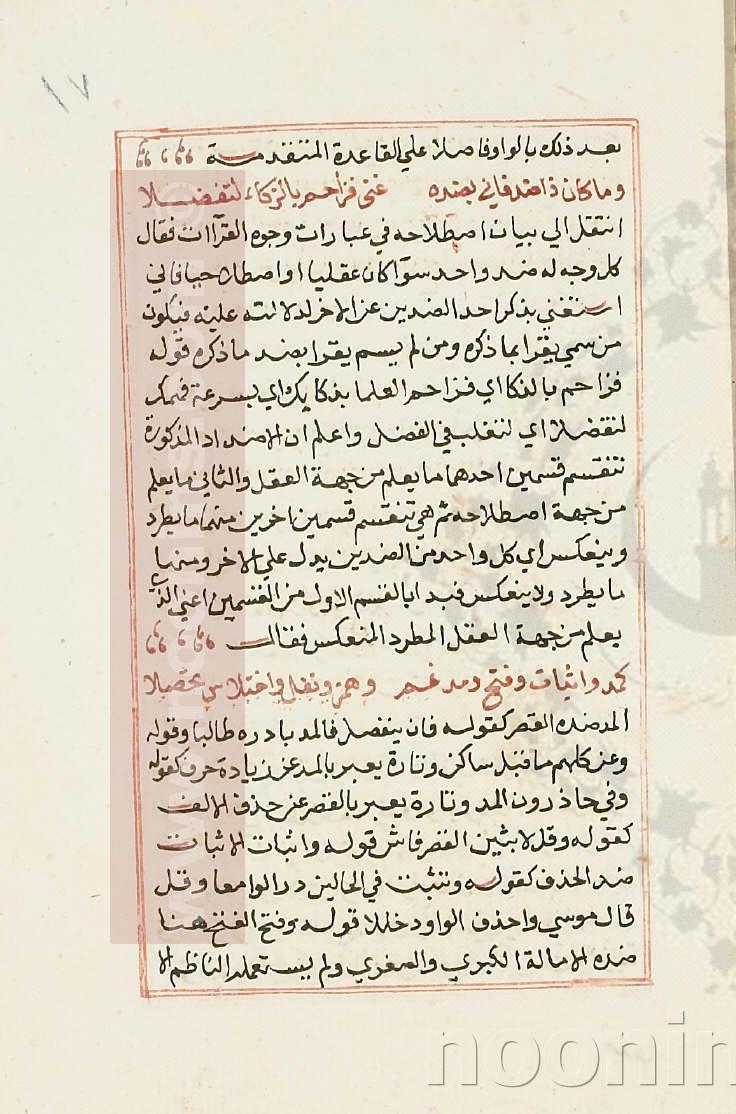 ١٧
بعد ذلك بالواو فاصلا على القاعدة المتقدمة
وما كان ذا ضد فاني بضده غنى فزاحم بالزكاء لتفضلا
انتقل الي بيان اصطلاحه في عبارات وجوه القرآات فقال
كل وجه له ضد واحد سوآ كان عقليا او اصطلاحيا فاني
استغني بذكر احد الضدين عن الاخر لدلالته عليه فيكون
من سمي يقرا بما ذكره ومن لم يسم يقرا بضد ما ذكره قوله
فزاحم بالذكا اي فزاحم العلما بذكايك اي بسرعة فهمك
لتفضلا اي لتغلب في الفضل واعلم ان الاضداد المذكورة
تنقسم قسمين احدهما ما يعلم من جهة العقل والثاني ما يعلم
من جهة اصطلاحه ثم هي تنقسم قسمين اخرين منها ما يطرد
وينعكس اي كل واحد من الضدين يدل علي الاخر ومنها
ما يطرد ولا ينعكس فبدا بالقسم الاول من القسمين اعني الذي
يعلم من جهة العقل المطرد المنعكس فقال
كمد واثبات وفتح ومدغم وهمز ونقل واختلاس تحصلا
المد ضده القصر كقوله فان ينفصل فالمد بادره طالبا وقوله
وعن كلهم ما قبل ساكن وتارة يعبر بالمد عن زيادة حرف كقوله
وفي حاذرون المد وتارة يعبر بالقصر عن حذف الالف
كقوله وقل لابثين القصر فاش قوله واثبات الاثبات
ضد الحذف كقوله وتثبت في الحالين درا لوامعا وقل
قال موسي واحذف الواو دخللا قوله وفتح الفتح هنا
ضده الامالة الكبري والصغري ولم يستعمله الناظم الا
www.
noonin